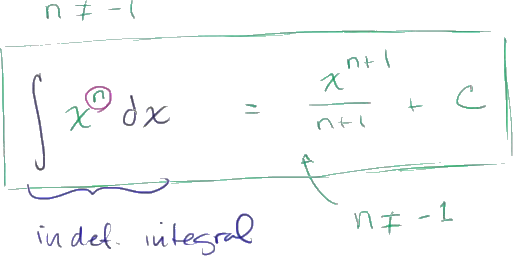 n ≠ -1
∫ xⁿ dx = xⁿ⁺¹/n+1 + C
n ≠ -1
indef. integral